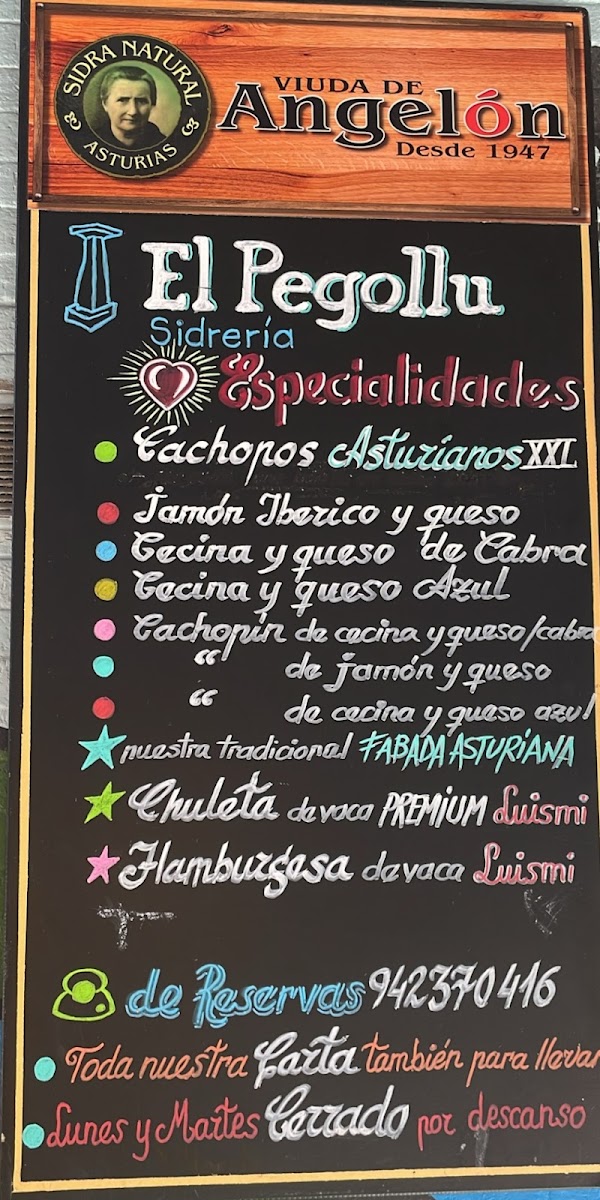 SIDRA NATURAL
ASTURIAS
VIUDA DE
Angelón
Desde 1947
El Pegollu
Sidrería
Especialidades
Cachopos Asturianos XXL
Jamón Iberico y queso
Cecina y queso de Cabra
Cecina y queso Azul
Cachopín de cecina y queso/cabra
“ de jamón y queso
“ de cecina y queso azul
nuestra tradicional FABADA ASTURIANA
Chuleta de vaca PREMIUM Luismi
Hamburgesa de vaca Luismi
de Reservas 942370416
Toda nuestra Carta también para llevar
Lunes y Martes Cerrado por descanso